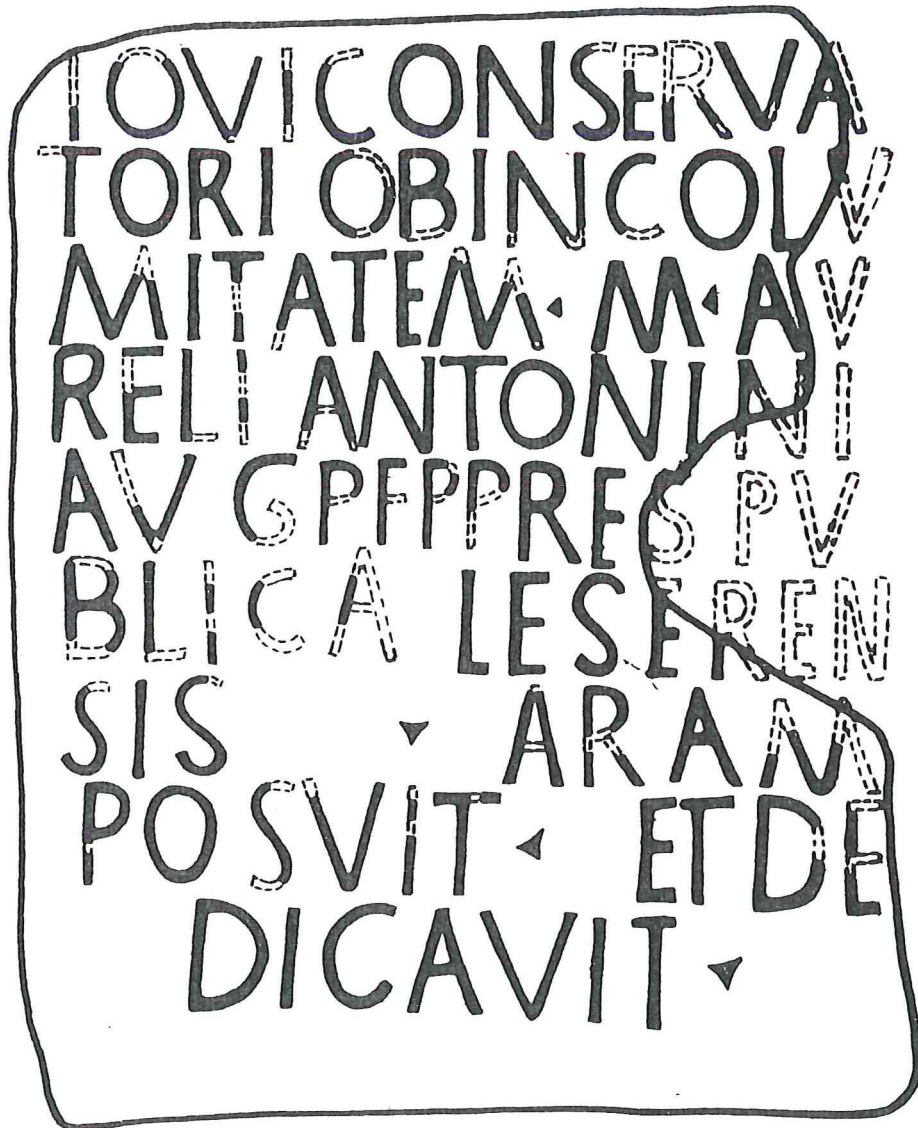 IOVI CONSERVA
TORI OB INCOLV
MITATEM · M · AV
RELI ANTONINI
AVG PF PP RES PV
BLICA LESEREN
SIS ARAM
POSVIT · ET DE
DICAVIT ·